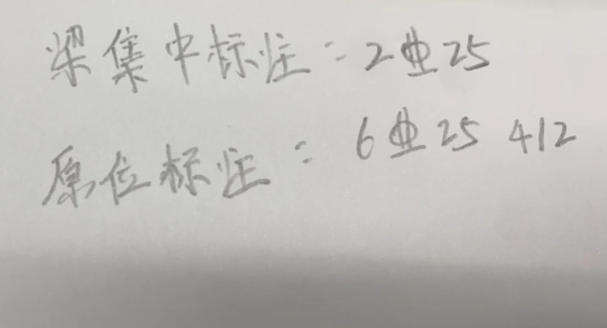 梁集中标注：2⏀25
原位标注：6⏀25 412